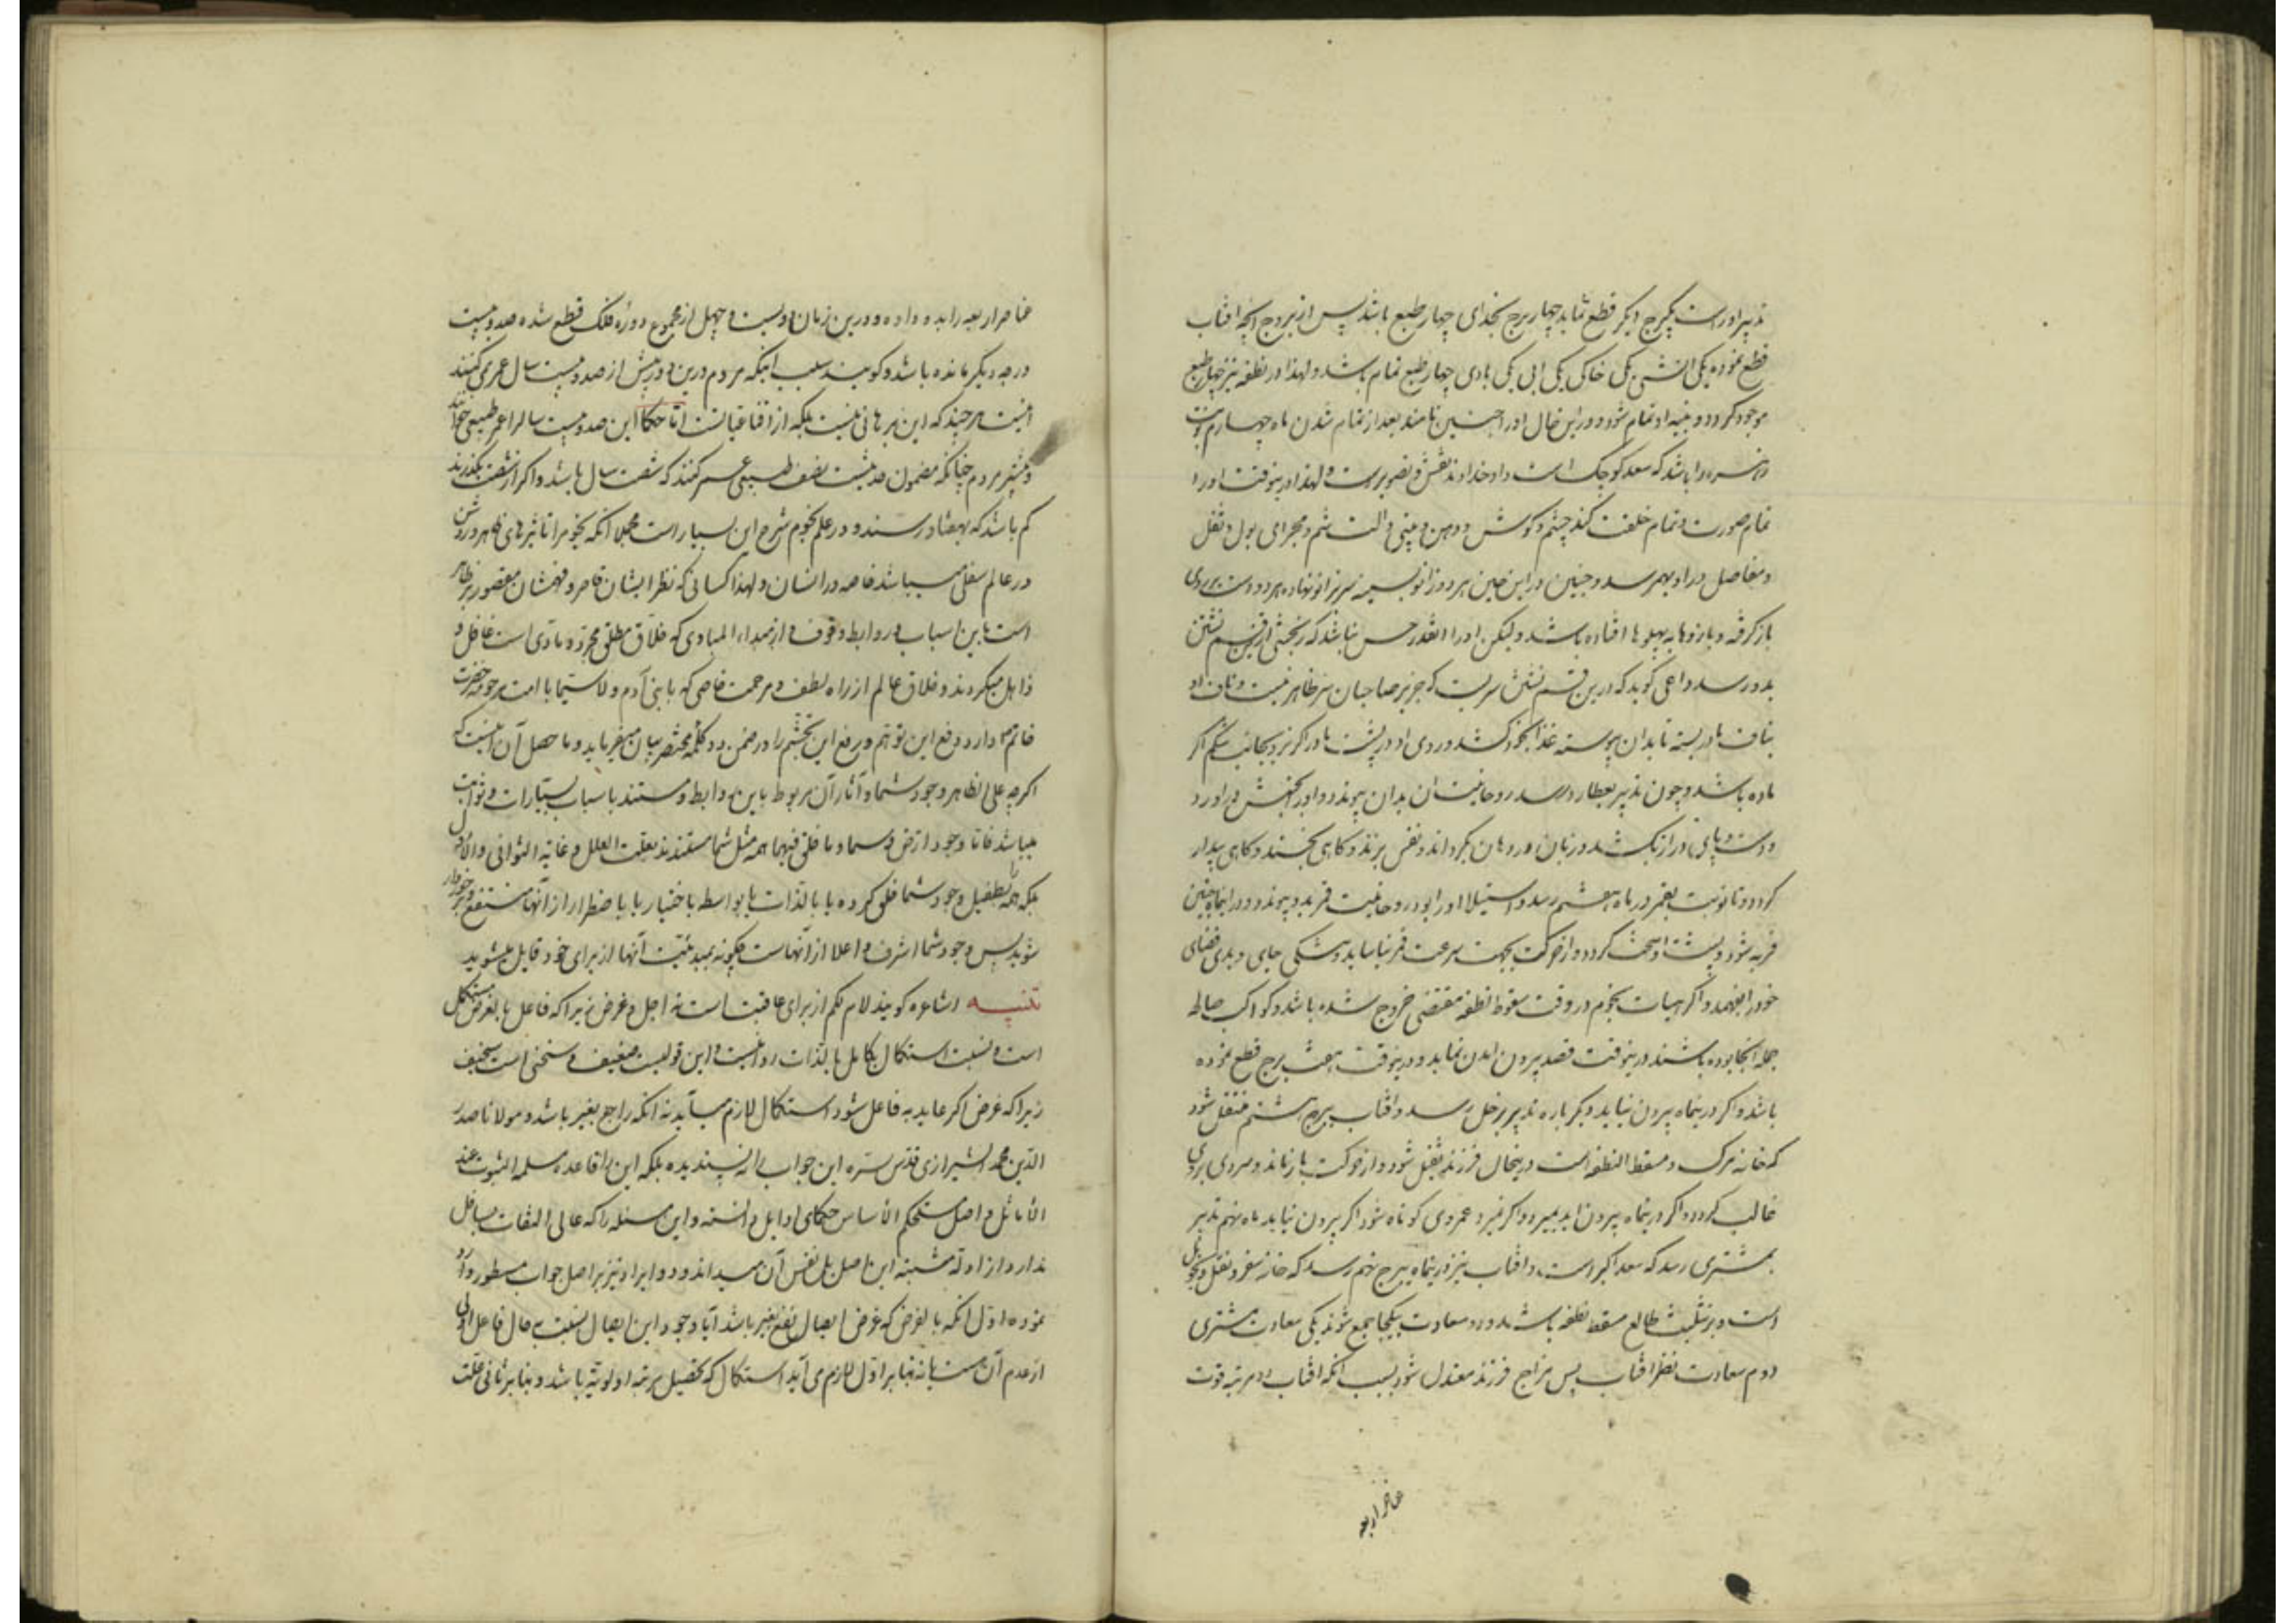 تدبیر اوراست یکبرج دیگر قطع نماید چهار برج بخدای چهار طبع باشد پس از بروج آنچه افتاب
قطع نموده یکی اتشی یکی خاکی یکی ابی یکی بادی چهار طبع تمام باشد ولهذا در نطفه نیز چهار طبع
موجود کردد و بنیه او تمام شود و در این حال او را جنین نامند بعد از تمام شدن ماه چهارم نوبت
زهره را باشد که سعد کوچک است و او خداوند نقش و تصویر است و لهذا در ینوقت او را
تمام صورت و تمام خلقت کند چشم و کوش و دهن و بینی و الت شم و مجرای بول و ثفل
و مفاصل در او بهم رسد و جنین در این حین هر دو زانو بسینه سر بزانو نهاده هر دو دست بر روی
باز کرفته و بازوها به پهلوها افتاده باشد و لیکن او را انقدر حس نباشد که رنجشی از این قسم نشستن
بدو رسد داعی کوید که درین قسم نشستن سریست که جز بر صاحبان سر ظاهر نیست و ناف او
بناف مادر بسته تا بدان پیوسته غذا بخود کشد و روی او در پشت مادر اکر نر و بجانب شکم اکر
ماده باشد و چون تدبیر بعطارد رسد روحانیت ان بدان پیوندد و او را بجنبش در اورد
و دست و پای دراز بکشد و زبان در دهان بکرداند و نفس برزند و کاهی بخسبد و کاهی بیدار
کردد و تا نوبت بقمر در ماه هفتم رسد و استیلا او را بود و روحانیت قمر بدو پیوندد و در اینماه جنین
فربه شود و پشت او سخت کردد و از حرکت بجهت سرعت قمر نیاساید و تنکی جای و بدی فضای
خود را بفهمد و اکر هیات نجوم در وقت سقوط نطفه مقتضی خروج شده باشد و کواکب صالحه
جمله انجا بوده باشند در ینوقت قصد بیرون امدن نماید و در ینوقت هفت برج قطع نموده
باشد و اکر درینماه بیرون نیاید دیکر باره تدبیر بزحل رسد و افتاب ببرج هشتم منتقل شود
که خانه مرک و مسقط النطفه است درینحال فرزند ثقیل شود و از حرکت باز ماند و سردی بر وی
غالب کردد و اکر درینماه بیرون اید بمیرد و اکر نمیرد عمر وی کوتاه شود اکر بیرون نیاید ماه نهم تدبیر
بمشتری رسد که سعد اکبر است و افتاب نیز درینماه ببرج نهم رسد که خانه سفر و نقل و تحویل
است و بر تثلیث طالع مسقط نطفه باشد و دو سعادت بیکجا جمع شوند یکی سعادت مشتری
دوم سعادت نظر افتاب پس مزاج فرزند معتدل شود بسبب انکه افتاب در مرتبه قوت
عناصر اربعه
عناصر اربعه را بدو داده و درین زمان دویست و چهل از مجموع دوره فلک قطع شده صد و بیست
درجه دیکر مانده باشد و کویند سبب اینکه مردم درین دور بیش از صد و بیست سال عمر نمی کنند
اینست هر چند که این برهانی نیست بلکه از اقناعیاتست امّا حکما این صد و بیست سال را عمر طبیعی خوانند
و بیشتر مردم چنانکه مضمون حدیثست نصف طبیعی عمر کنند که شصت سال باشد و اکر از شصت بکذرند
کم باشد که بهشتاد رسند و در علم نجوم شرح این بسیار است مجملا آنکه نجوم را تاثیرهای ظاهر و روشن
در عالم سفلی میباشد خاصه در انسان و لهذا کسانی که نظر ایشان قاصر و فهمشان مقصور بر ظاهر
است باین اسباب و روابط وقوف و از مبداء المبادی که خلّاق مطلق مجرّد و مادّی است غافل و
ذاهل میکردند و خلّاق عالم از راه لطف و مرحمت خاصی که با بنی آدم و لاسیّما با امت مرحومه حضرت
خاتم دارد دفع این توهّم و رفع این تجشّم را در ضمن دو کلمه مختصر بیان میفرماید و ماحصل آن اینست که
اکرچه علی الظاهر وجود شما و آثار آن مربوط باین روابط و مستند باسباب سیّارات و ثوابت
میباشد فامّا وجود ارض و سماء و ما خلق فیهما همه مثل شما مستندند بعلّت العلل و غایة الثوانی و الاوایل
بلکه همه را بطفیل وجود شما خلق کرده یا بالذات یا بواسطه باختیار یا باضطرار از آنها منتفع و برخوردار
شوید پس وجود شما اشرف و اعلا از آنهاست چکونه بمبدئیّت آنها از برای خود قایل میشوید
تنبیه اشاعره کویند لام لکم از برای عاقبت است نه اجل و غرض زیرا که فاعل بالغرض مستکمل
است و نسبت استکمال بکامل بالذات روا نیست و این قولیست ضعیف و سخنی است سخیف
زیرا که غرض اکر عاید به فاعل شود استکمال لازم میآید نه آنکه راجع بغیر باشد و مولانا صدر
الدّین محمد الشیرازی قدّس سرّه این جواب را نه پسندیده بلکه این را قاعده مسلمة الثبوت عند
الاماثل و اصل مستحکم الاساس حکمای اوایل دانسته و این مسئله را که عالی التفات بسافل
ندارد از ادلّه مثبته این اصل بل نفس آن میداند و دو ایراد نیز بر اصل جواب مسطور وارد
نموده اوّل آنکه بالفرض که غرض ایصال نفع بغیر باشد آیا وجود این ایصال نسبت بحال فاعل اولی
از عدم آن هست یا نه بنابر اوّل لازم می آید استکمال که تحصیل مرتبه اولویّه باشد و بنا بر ثانی علّت